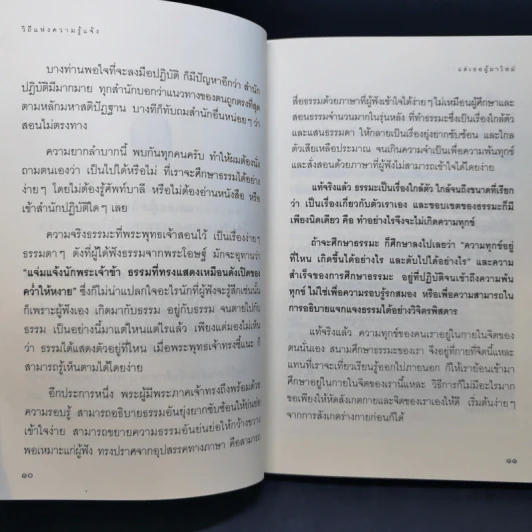 วิถีแห่งความรู้แจ้ง
บางท่านพอใจที่จะลงมือปฏิบัติ ก็มีปัญหาอีกว่า สำนัก
ปฏิบัติมีมากมาย ทุกสำนักบอกว่าแนวทางของตนถูกตรงที่สุด
ตามหลักมหาสติปัฏฐาน บางทีก็ทับถมสำนักอื่นหน่อยๆ ว่า
สอนไม่ตรงทาง
ความยากลำบากนี้ พบกันทุกคนครับ ทำให้ผมต้องนั่ง
ถามตนเองว่า เป็นไปได้หรือไม่ ที่เราจะศึกษาธรรมได้อย่าง
ง่ายๆ โดยไม่ต้องรู้ศัพท์บาลี หรือไม่ต้องอ่านหนังสือ หรือ
เข้าสำนักปฏิบัติใดๆ เลย
ความจริงธรรมะที่พระพุทธเจ้าสอนไว้ เป็นเรื่องง่ายๆ
ธรรมดาๆ ดังที่ผู้ได้ฟังธรรมจากพระโอษฐ์ มักจะอุทานว่า
"แจ่มแจ้งนักพระเจ้าข้า ธรรมที่ทรงแสดงเหมือนดังเปิดของ
คว่ำให้หงาย" ซึ่งก็ไม่น่าแปลกใจอะไรนักที่ผู้ฟังจะรู้สึกเช่นนั้น
ก็เพราะผู้ฟังเอง เกิดมากับธรรม อยู่กับธรรม จนตายไปกับ
ธรรม เป็นอย่างนี้มาแต่ไหนแต่ไรแล้ว เพียงแต่มองไม่เห็น
ว่า ธรรมได้แสดงตัวอยู่ที่ไหน เมื่อพระพุทธเจ้าทรงชี้แนะ ก็
สามารถรู้เห็นตามได้โดยง่าย
อีกประการหนึ่ง พระผู้มีพระภาคเจ้าทรงถึงพร้อมด้วย
ความรอบรู้ สามารถอธิบายธรรมอันยุ่งยากซับซ้อนให้ย่นย่อ
เข้าใจง่าย สามารถขยายความธรรมอันย่นย่อให้กว้างขวาง
พอเหมาะแก่ผู้ฟัง ทรงปราศจากอุปสรรคทางภาษา คือสามารถ
๑๐
แด่เธอผู้มาใหม่
สื่อธรรมด้วยภาษาที่ผู้ฟังเข้าใจได้ง่ายๆ ไม่เหมือนผู้ศึกษาและ
สอนธรรมจำนวนมากในรุ่นหลัง ที่ทำธรรมะซึ่งเป็นเรื่องใกล้ตัว
และแสนธรรมดา ให้กลายเป็นเรื่องยุ่งยากซับซ้อน และไกล
ตัวเสียเหลือประมาณ จนเกินความจำเป็นเพื่อความพ้นทุกข์
และสั่งสอนด้วยภาษาที่ผู้ฟังไม่สามารถเข้าใจได้โดยง่าย
แท้จริงแล้ว ธรรมะเป็นเรื่องใกล้ตัว ใกล้จนถึงขนาดที่เรียก
ว่า เป็นเรื่องเกี่ยวกับตัวเราเอง และขอบเขตของธรรมะก็มี
เพียงนิดเดียว คือ ทำอย่างไรจึงจะไม่เกิดความทุกข์
ถ้าจะศึกษาธรรมะ ก็ศึกษาลงไปเลยว่า "ความทุกข์อยู่
ที่ไหน เกิดขึ้นได้อย่างไร และดับไปได้อย่างไร" และความ
สำเร็จของการศึกษาธรรมะ อยู่ที่ปฏิบัติจนเข้าถึงความพ้น
ทุกข์ ไม่ใช่เพื่อความรอบรู้รกสมอง หรือเพื่อความสามารถใน
การอธิบายแจกแจงธรรมได้อย่างวิจิตรพิสดาร
แท้จริงแล้ว ความทุกข์ของคนเราอยู่ในกายในจิตของ
ตนนั่นเอง สนามศึกษาธรรมะของเรา จึงอยู่ที่กายที่จิตนี้แหละ
แทนที่เราจะเที่ยวเรียนรู้ออกไปภายนอก ก็ให้เราย้อนเข้ามา
ศึกษาอยู่ในกายในจิตของเรานี้แหละ วิธีการก็ไม่มีอะไรมาก
ขอเพียงให้หัดสังเกตกายและจิตของเราเองให้ดี เริ่มต้นง่ายๆ
จากการสังเกตร่างกายก่อนก็ได้
๑๑